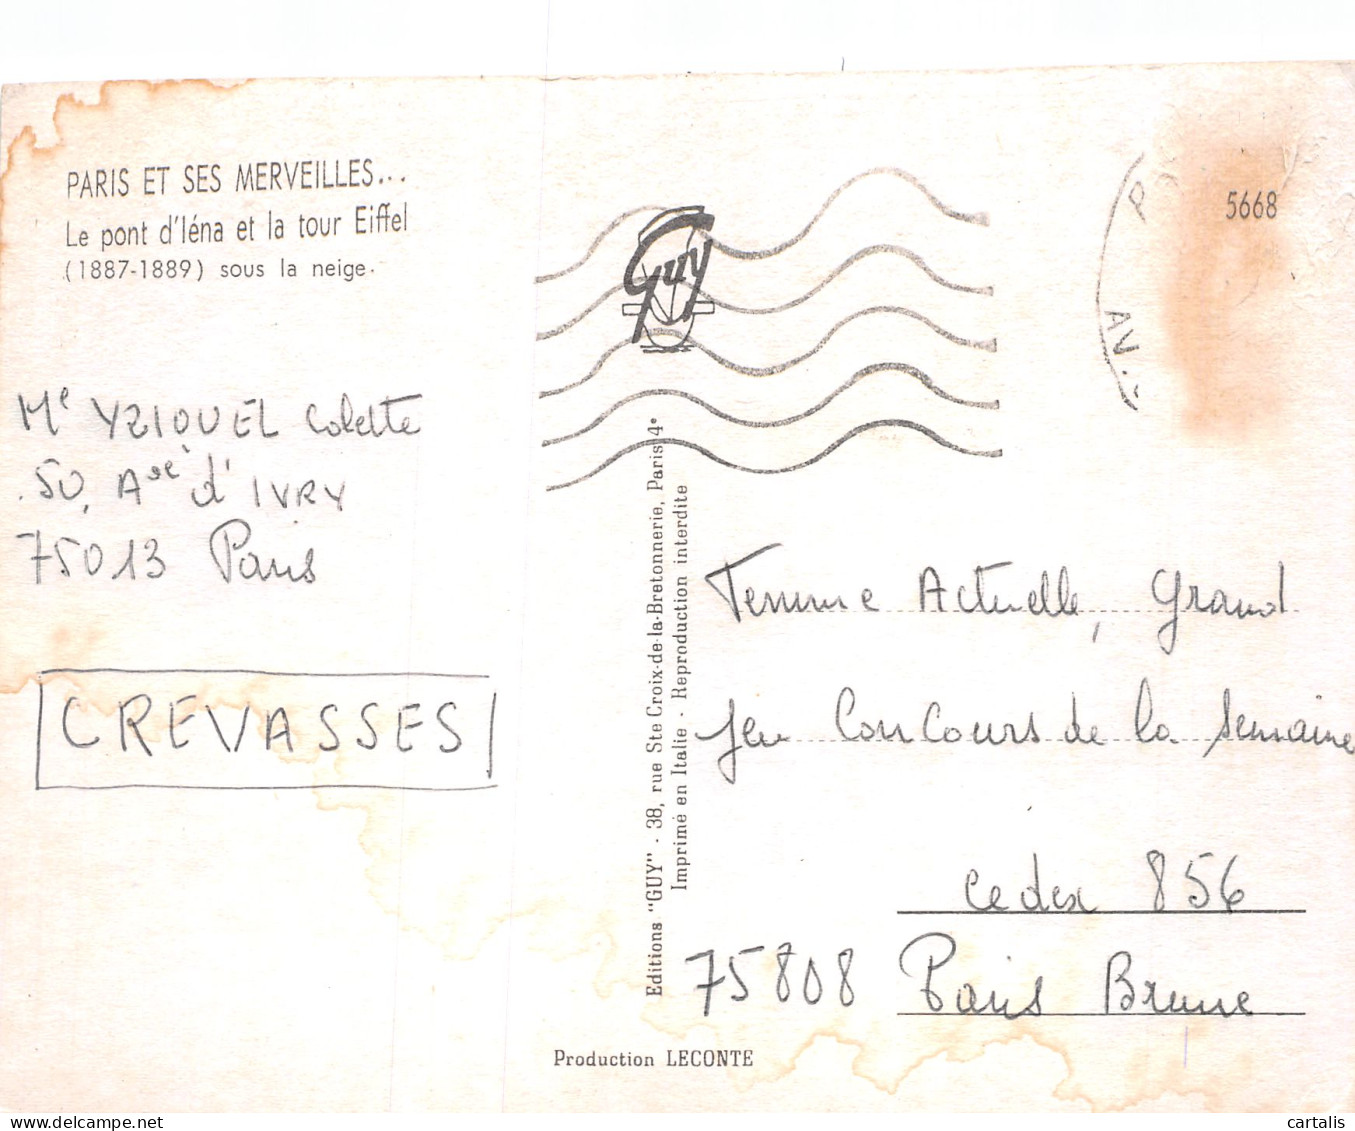 PARIS ET SES MERVEILLES...
Le pont d'Iéna et la tour Eiffel
(1887-1889) sous la neige.
Guy
P
AV.
5668
Me YZIQUEL Colette
50, Ave d'IVRY
75013 Paris
CREVASSES
Editions "GUY" - 38, rue Ste Croix-de-la-Bretonnerie, Paris 4e
Imprimé en Italie - Reproduction interdite
Femme Actuelle, Grand
Jeu Concours de la Semaine
Cedex 856
75808 Paris Brune
Production LECONTE
cartalis